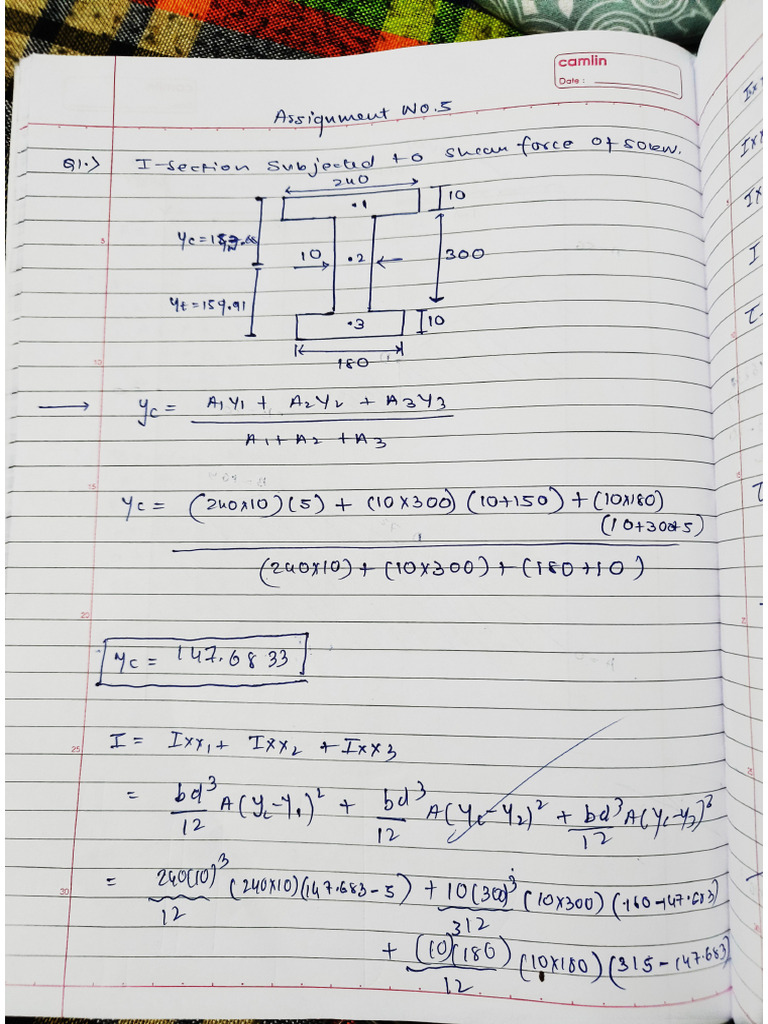 camlin
Date :
Assignment No.5
Q1.> I-section subjected to shear force of 50kN.
240
•1
10
Yc=
10
•2
300
Yt=159.91
•3
10
180
→ yc = A1Y1 + A2Y2 + A3Y3
A1+A2 +A3
Yc = (240x10)(5) + (10x300)(10+150) + (10x180)
(10+300+5)
(240x10)+(10x300)+(180+10)
Yc = 147.6833
I = Ixx1 + Ixx2 + Ixx3
= bd³/12 A(Yc-Y1)² + bd³/12 A(Yc-Y2)² + bd³/12 A(Yc-Y3)²
= 240(10)³/12 (240x10)(147.683-5) + 10(300)³/12 (10x300)(160-147.683)
+ (10)³(180)/12 (10x180)(315-147.683)